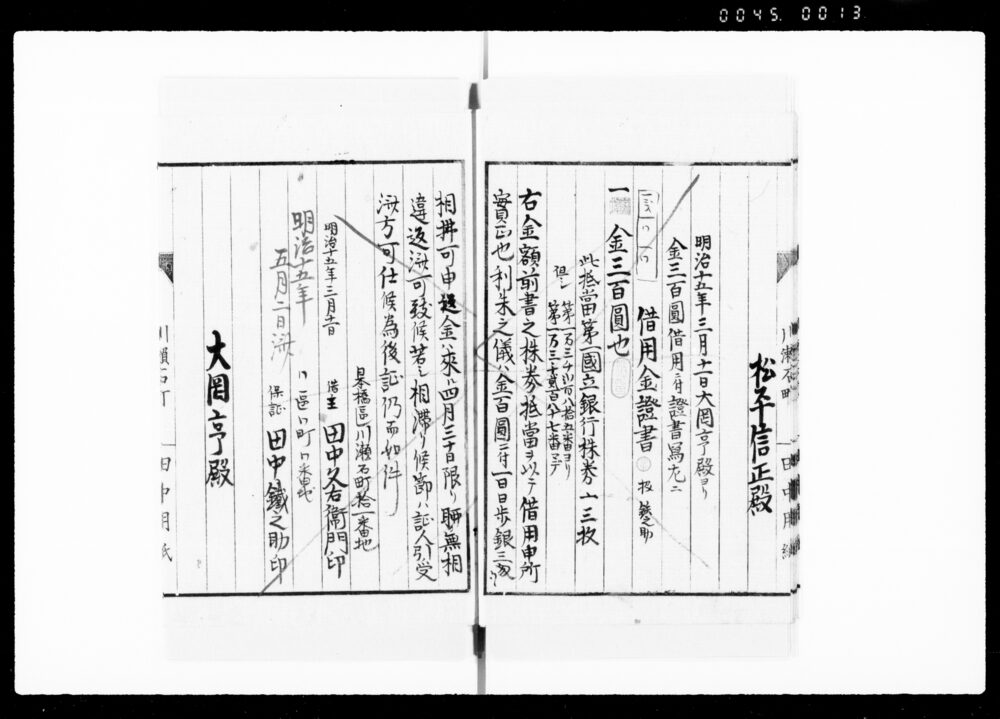 0045. 0013
松平信正殿
明治十五年三月十一日大岡亨殿ヨリ
金三百圓借用ニ付證書寫左ニ
借用金證書 扱 鉄之助
一 金三百圓也
此抵當第一國立銀行株券 三枚
但シ 第一万三千
第一万三千 番マデ
右金額前書之株券抵當ヲ以テ借用申所
實正也利朱之儀ハ金百圓ニ付一日日歩銀三
相拂可申返金ハ来ル四月三十日限リ聊無相
違返済可致候若シ相滞リ候節ハ証人引受
済方可仕候為後証仍而如件
日本橋区川瀬石町拾一番地
明治十五年三月十一日 借主 田中久右衛門印
〃区〃町〃番地
保証 田中鐵之助印
明治十五年
五月二日済
大岡亨殿
川瀬石町 田中用紙